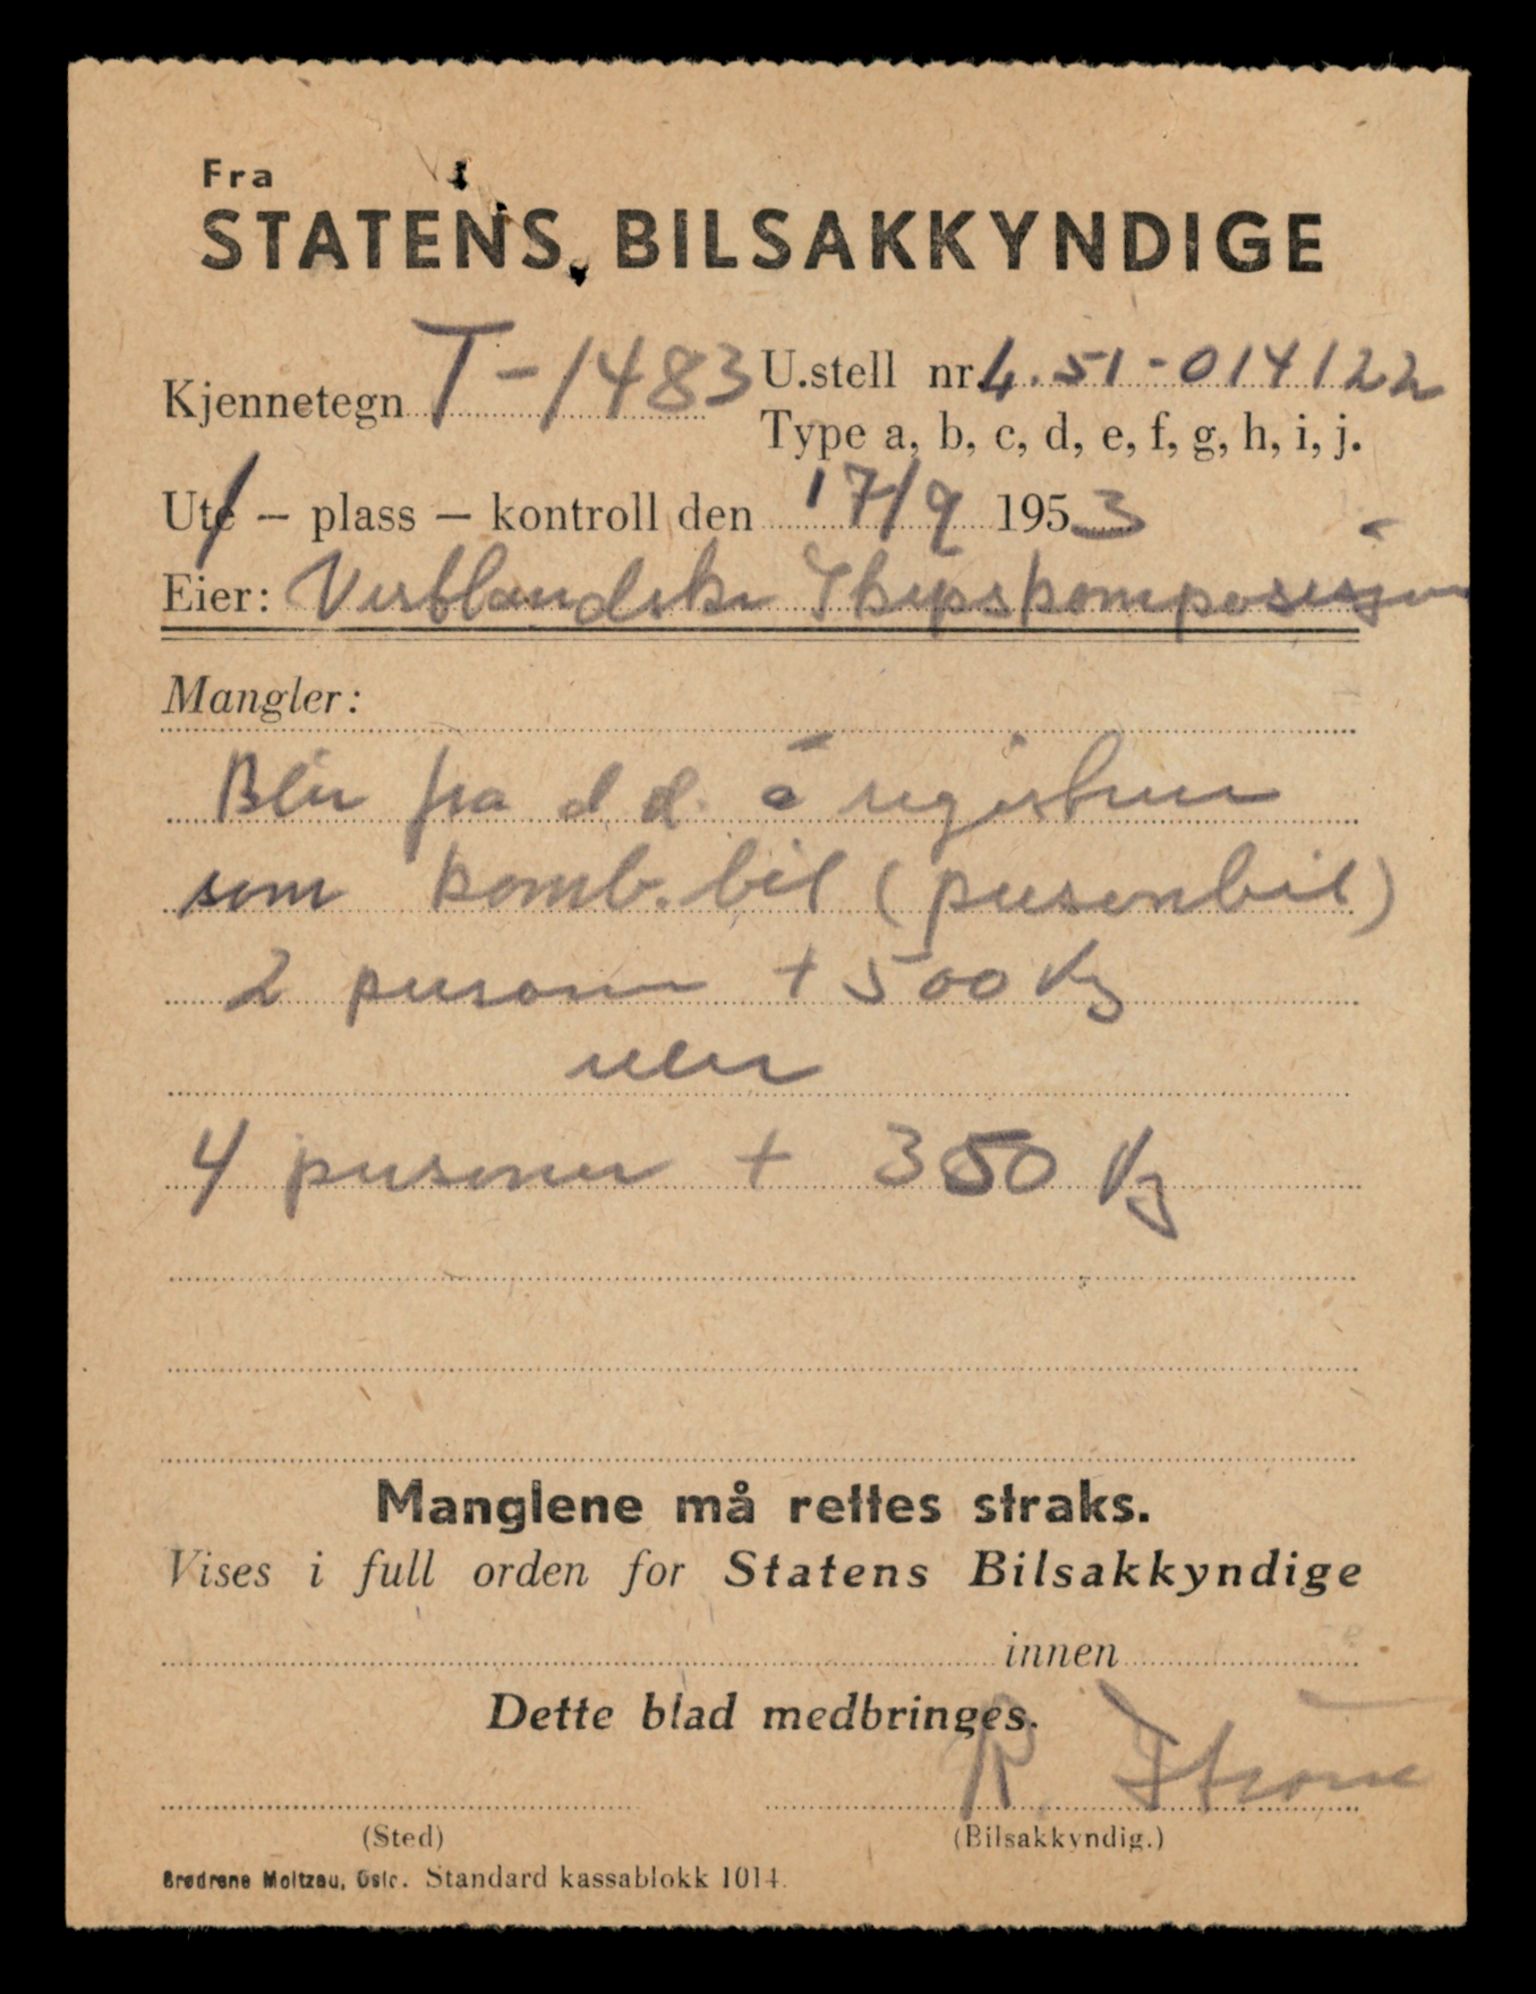 Fra
STATENS BILSAKKYNDIGE
Kjennetegn T-1483 U.stell nr. 4.51-014122
Type a, b, c, d, e, f, g, h, i, j.
Ute – plass – kontroll den 17/9 1953
Eier: Vestlandske Skipskomposisjon
Mangler:
Blir fra d.d. å registrere
som komb. bil (personbil)
2 personer + 500 kg
eller
4 personer + 350 kg
Manglene må rettes straks.
Vises i full orden for Statens Bilsakkyndige
innen
Dette blad medbringes.
R.
(Sted) (Bilsakkyndig.)
Brødrene Moltzau, Oslo. Standard kassablokk 1014.